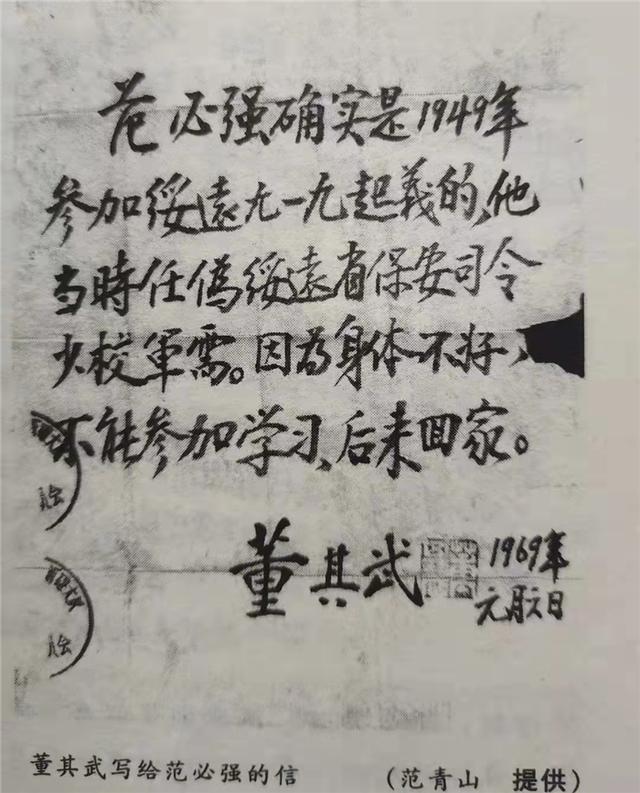 范必强确实是1949年
参加綏遠九一九起義的,他
当時任僞綏遠省保安司令
少校軍需。因为身体不好,
不能参加学习,后来回家。
董其武
1969年
元月六日
董其武写给范必强的信 (范青山 提供)